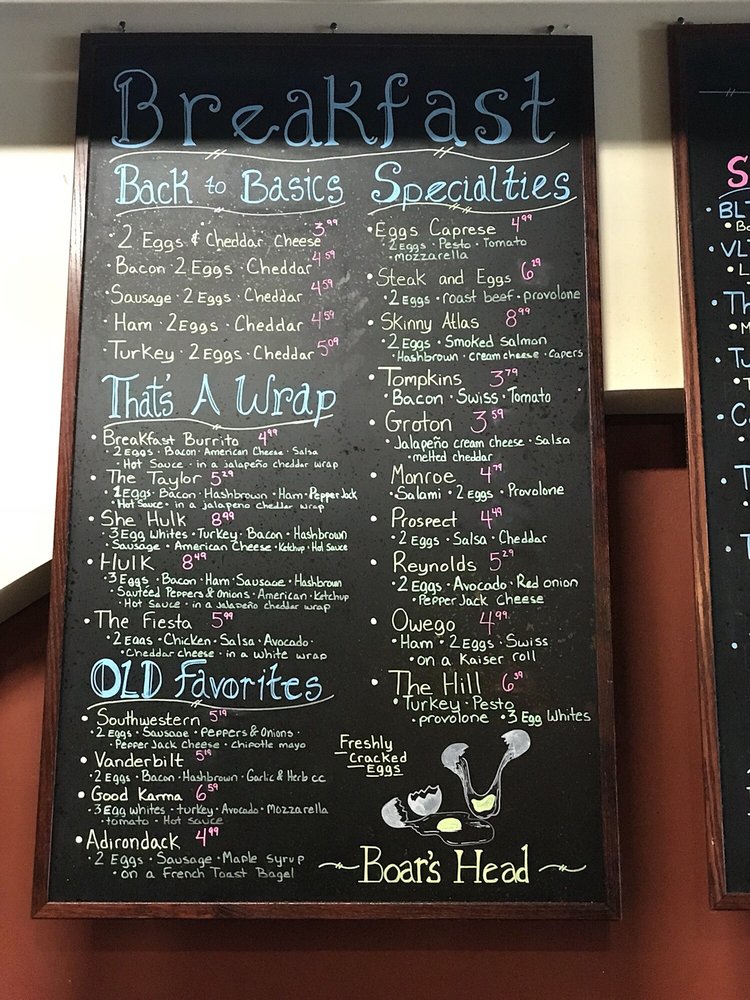 Breakfast
Back to Basics
• 2 Eggs & Cheddar Cheese 3.99
• Bacon · 2 Eggs · Cheddar 4.59
• Sausage · 2 Eggs · Cheddar 4.59
• Ham · 2 Eggs · Cheddar 4.59
• Turkey · 2 Eggs · Cheddar 5.09
That's A Wrap
• Breakfast Burrito 4.99
• 2 Eggs · Bacon · American Cheese · Salsa
• Hot Sauce · in a jalapeño cheddar wrap
• The Taylor 5.29
• 1 Eggs · Bacon · Hashbrown · Ham · Pepper Jack
• Hot Sauce · in a jalapeno cheddar wrap
• She Hulk 8.99
• 3 Egg Whites · Turkey · Bacon · Hashbrown
Sausage · American Cheese · Ketchup · Hot Sauce
• Hulk 8.49
• 3 Eggs · Bacon · Ham · Sausage · Hashbrown
Sautéed Peppers & Onions · American · Ketchup
• Hot Sauce · in a jalapeño cheddar wrap
• The Fiesta 5.99
• 2 Eggs · Chicken · Salsa · Avocado ·
• Cheddar cheese · in a white wrap
OLD Favorites
• Southwestern 5.19
• 2 Eggs · Sausage · Peppers & Onions ·
• Pepper Jack Cheese · Chipotle mayo
• Vanderbilt 5.19
• 2 Eggs · Bacon · Hashbrown · Garlic & Herb cc
• Good Karma 6.59
• 3 Egg whites · turkey · Avocado · Mozzarella
• tomato · Hot sauce
• Adirondack 4.99
• 2 Eggs · Sausage · Maple syrup
• on a French Toast Bagel
Specialties
• Eggs Caprese 4.99
• 2 Eggs · Pesto · Tomato
• mozzarella
• Steak and Eggs 6.29
• 2 Eggs · roast beef · provolone
• Skinny Atlas 8.99
• 2 Eggs · Smoked salmon
• Hashbrown · cream cheese · Capers
• Tompkins 3.79
• Bacon · Swiss · Tomato
• Groton 3.59
• Jalapeño cream cheese · Salsa
• melted cheddar
• Monroe 4.79
• Salami · 2 Eggs · Provolone
• Prospect 4.49
• 2 Eggs · Salsa · Cheddar
• Reynolds 5.29
• 2 Eggs · Avocado · Red onion
• Pepper Jack Cheese
• Owego 4.99
• Ham · 2 Eggs · Swiss
• on a Kaiser roll
• The Hill 6.39
• Turkey · Pesto
· provolone • 3 Egg Whites
Freshly
Cracked
Eggs
Boar's Head
S
• BL
• VL